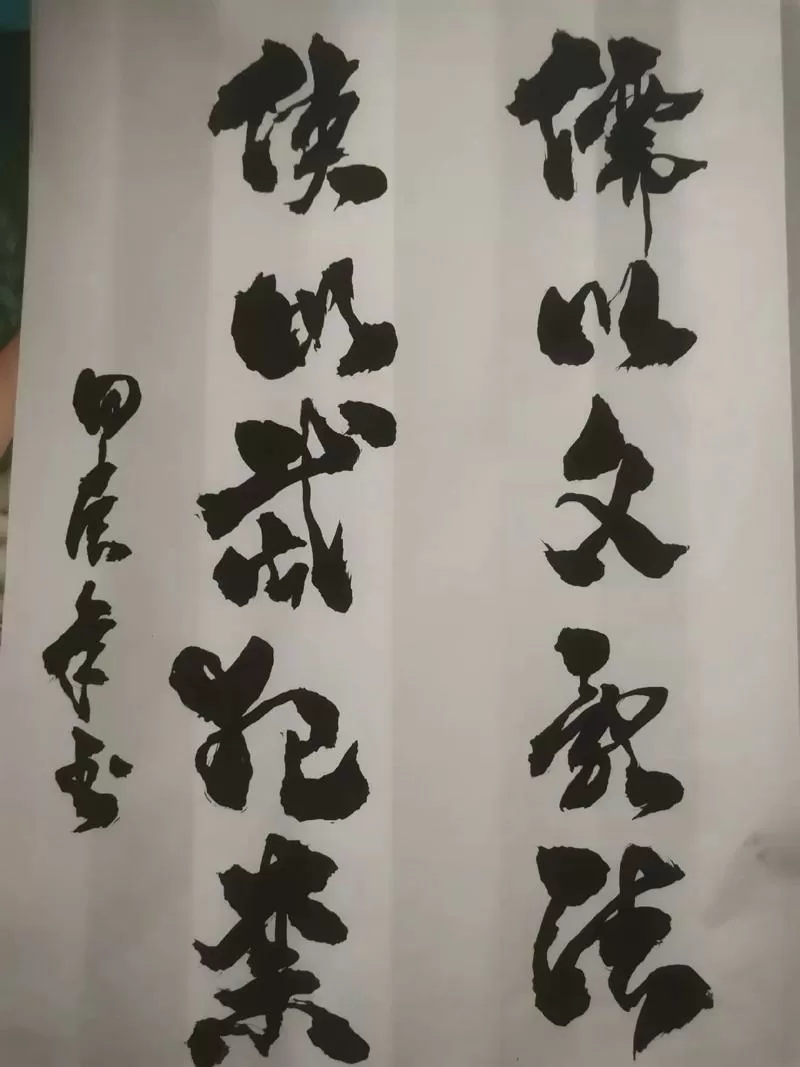 儒以文亂法
侠以武犯禁
甲辰年书